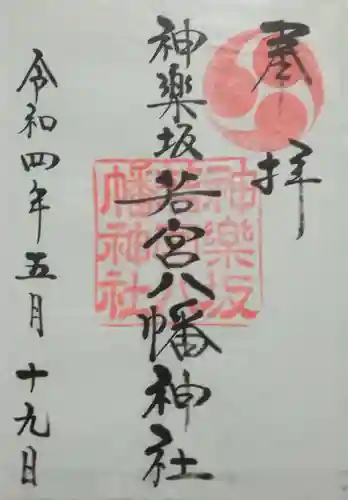 奉拝
神楽坂若宮八幡神社
神楽坂
若宮八
幡神社
令和四年五月十九日